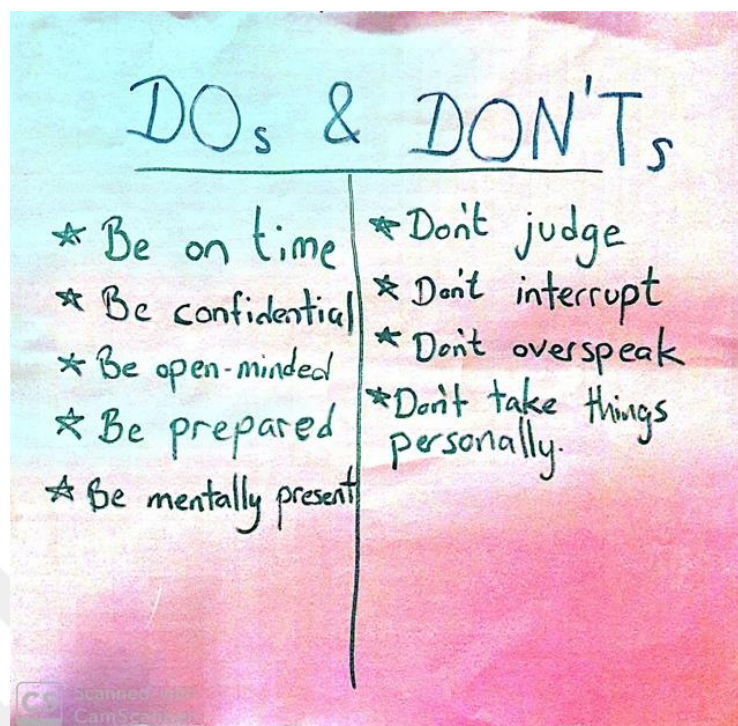 DOs & DON'Ts
★ Be on time
★ Be confidential
★ Be open-minded
★ Be prepared
★ Be mentally present
★ Don't judge
★ Don't interrupt
★ Don't overspeak
★ Don't take things
personally.
CS Scanned with
CamScanner